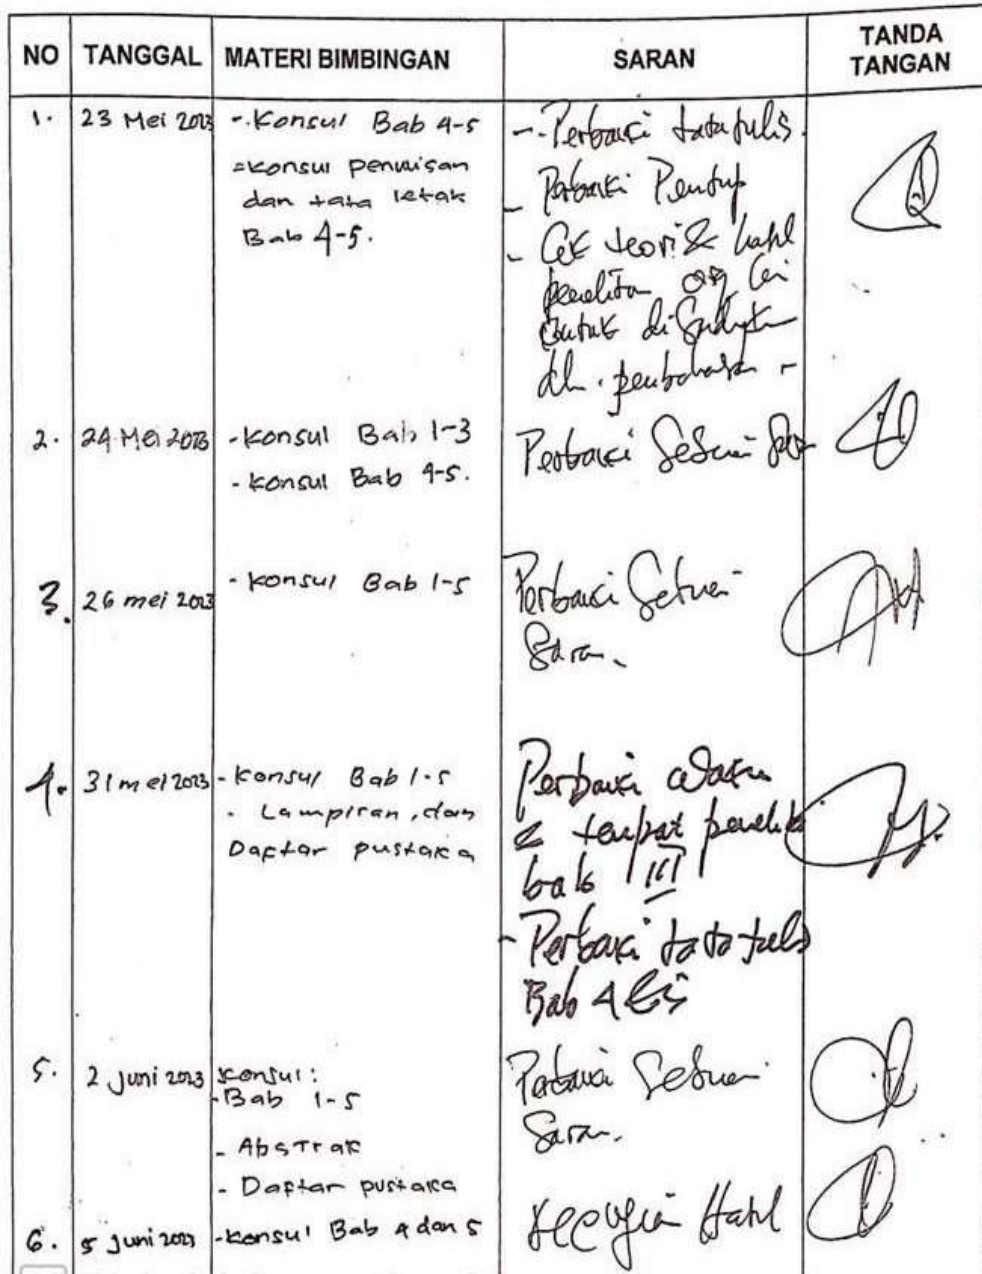 NO TANGGAL MATERI BIMBINGAN SARAN TANDA TANGAN
1. 23 Mei 2023
- Konsul Bab 4-5
- Konsul penulisan
dan tata letak
Bab 4-5.
- Perbaiki tata tulis.
- Perbaiki Penutup
- Cek teori & hasil
penelitian
untuk
dlm. pembahasan -
2. 24 Mei 2023
- Konsul Bab 1-3
- Konsul Bab 4-5.
Perbaiki Sesuai
3. 26 mei 2023
- Konsul Bab 1-5
Perbaiki Sesuai
Saran.
4. 31 mei 2023
- Konsul Bab 1-5
- Lampiran, dan
Daftar pustaka
Perbaiki waktu
& tempat
bab III
- Perbaiki tata tulis
Bab 4 & 5
5. 2 Juni 2023
Konsul:
- Bab 1-5
- Abstrak
- Daftar pustaka
Perbaiki Sesuai
Saran.
6. 5 Juni 2023
- Konsul Bab 4 dan 5
Hasil